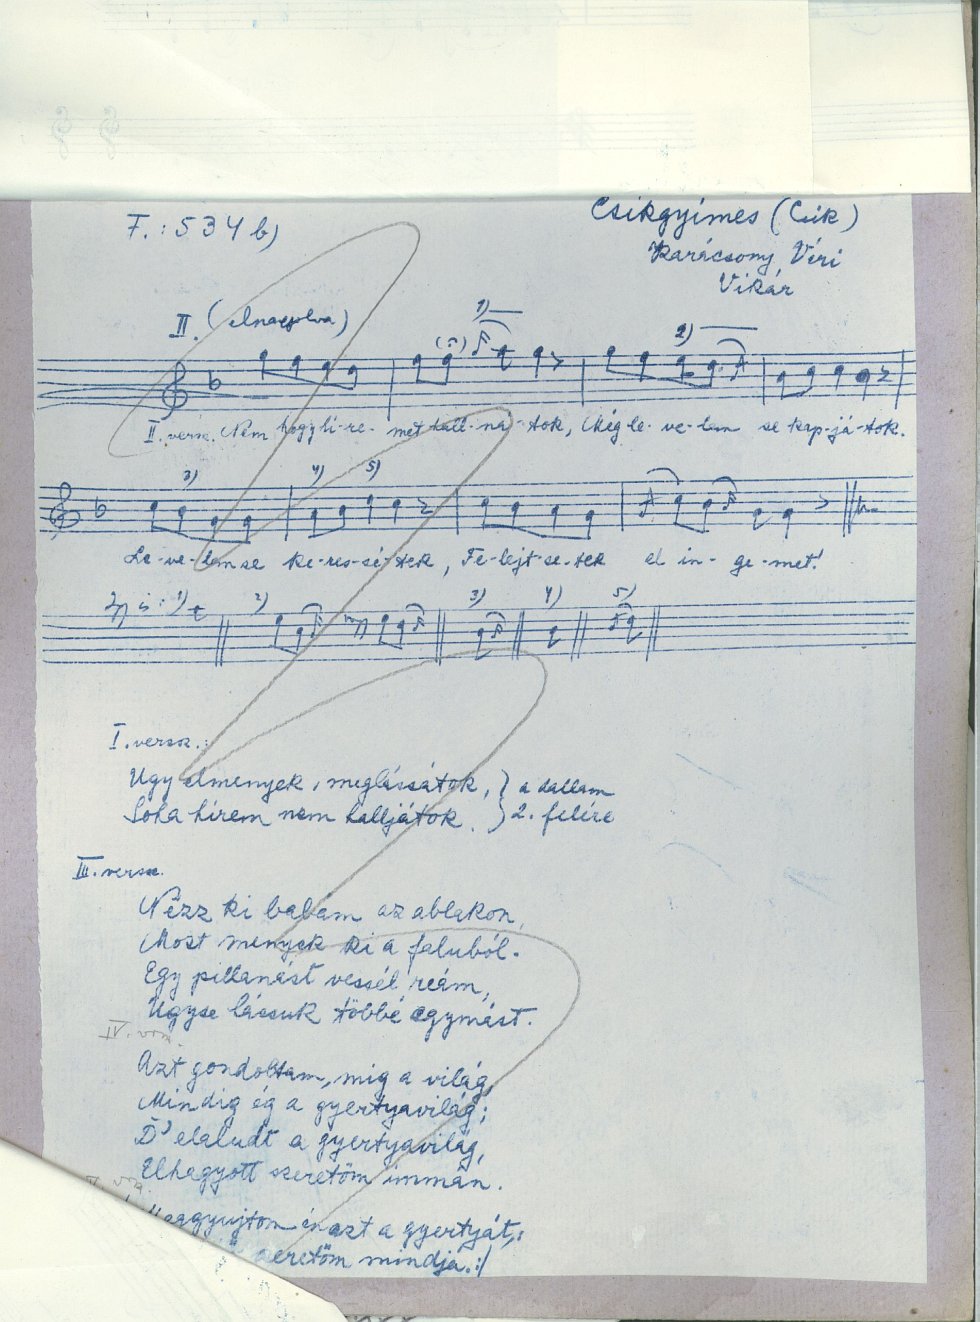 F.: 534 b)
Csikgyimes (Csik)
Karácsony Véri
Vikár
II. (elnagyolva)
1)
2)
II. versz. Nem hogy hi-re- met hall-ná-tok, Még le-ve-lem se kap-já-tok.
3) 4) 5)
Le-ve-lem se ke-res-sé-tek, Fe-lejt-se-tek el in-ge-met!
1) 2) 3) 4) 5)
I. versz.:
Ugy elmenyek, meglássátok, } a dallam
Soha hírem nem halljátok. } 2. felére
III. versz.
Nézz ki babám az ablakon,
Most menyek ki a faluból.
Egy pillanást vessél reám,
Úgyse lássuk többé egymást.
IV. vsz.
Azt gondoltam, mig a világ,
Mindig ég a gyertyavilág;
D' elaludt a gyertyavilág,
Elhagyott szeretöm immán.
V. vsz.
Meggyujtom én azt a gyertyát,:
szeretöm mindja.:/